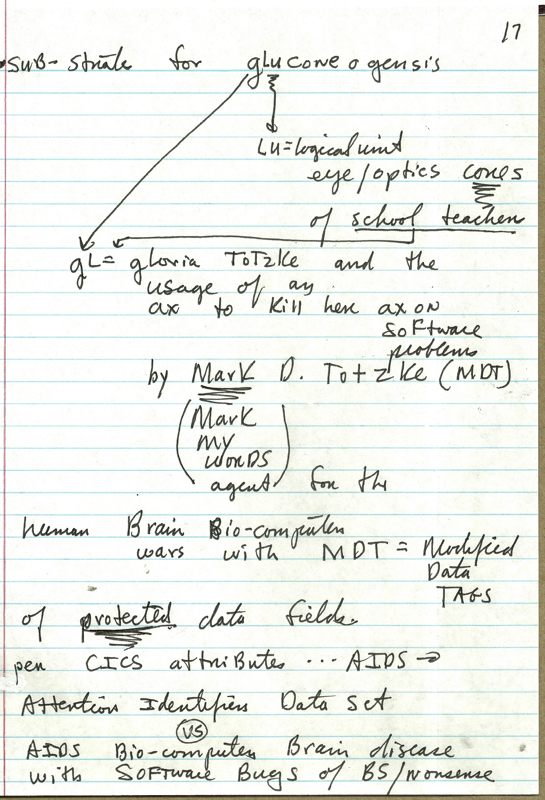 17
SUB-striate for gluconeogensis
LU=logical unit
eye/optics cones
of school teacher
gL= gloria ToTzke and the
usage of an
ax to kill her axon
software
problems
by Mark D. Totzke (MDT)
(Mark
my
words
agent) for the
human Brain Bio-computer
wars with MDT = Modified
Data
TAGS
of protected data fields.
per CICS attributes ... AIDS →
Attention Identifier Data Set
VS
AIDS Bio-computer Brain disease
with software Bugs of BS/nonsense